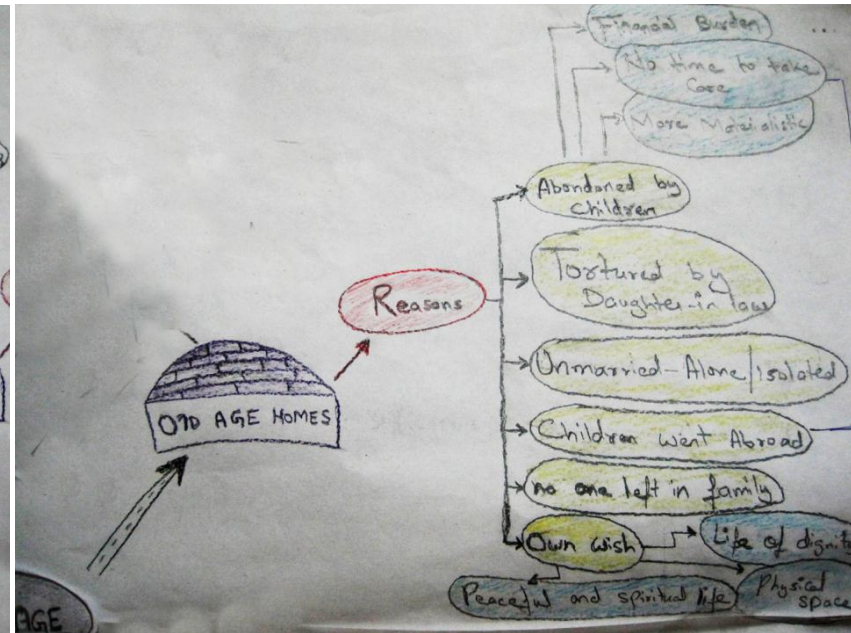 Financial Burden
...
No time to take
Care
More Materialistic
Abandoned by
Children
Tortured by
Daughter-in law
Reasons
Unmarried-Alone/isolated
OlD AGE HOMES
Children went Abroad
no one left in family
Own wish
Life of dignit
Peaceful and spiritual life
Physical
space
AGE